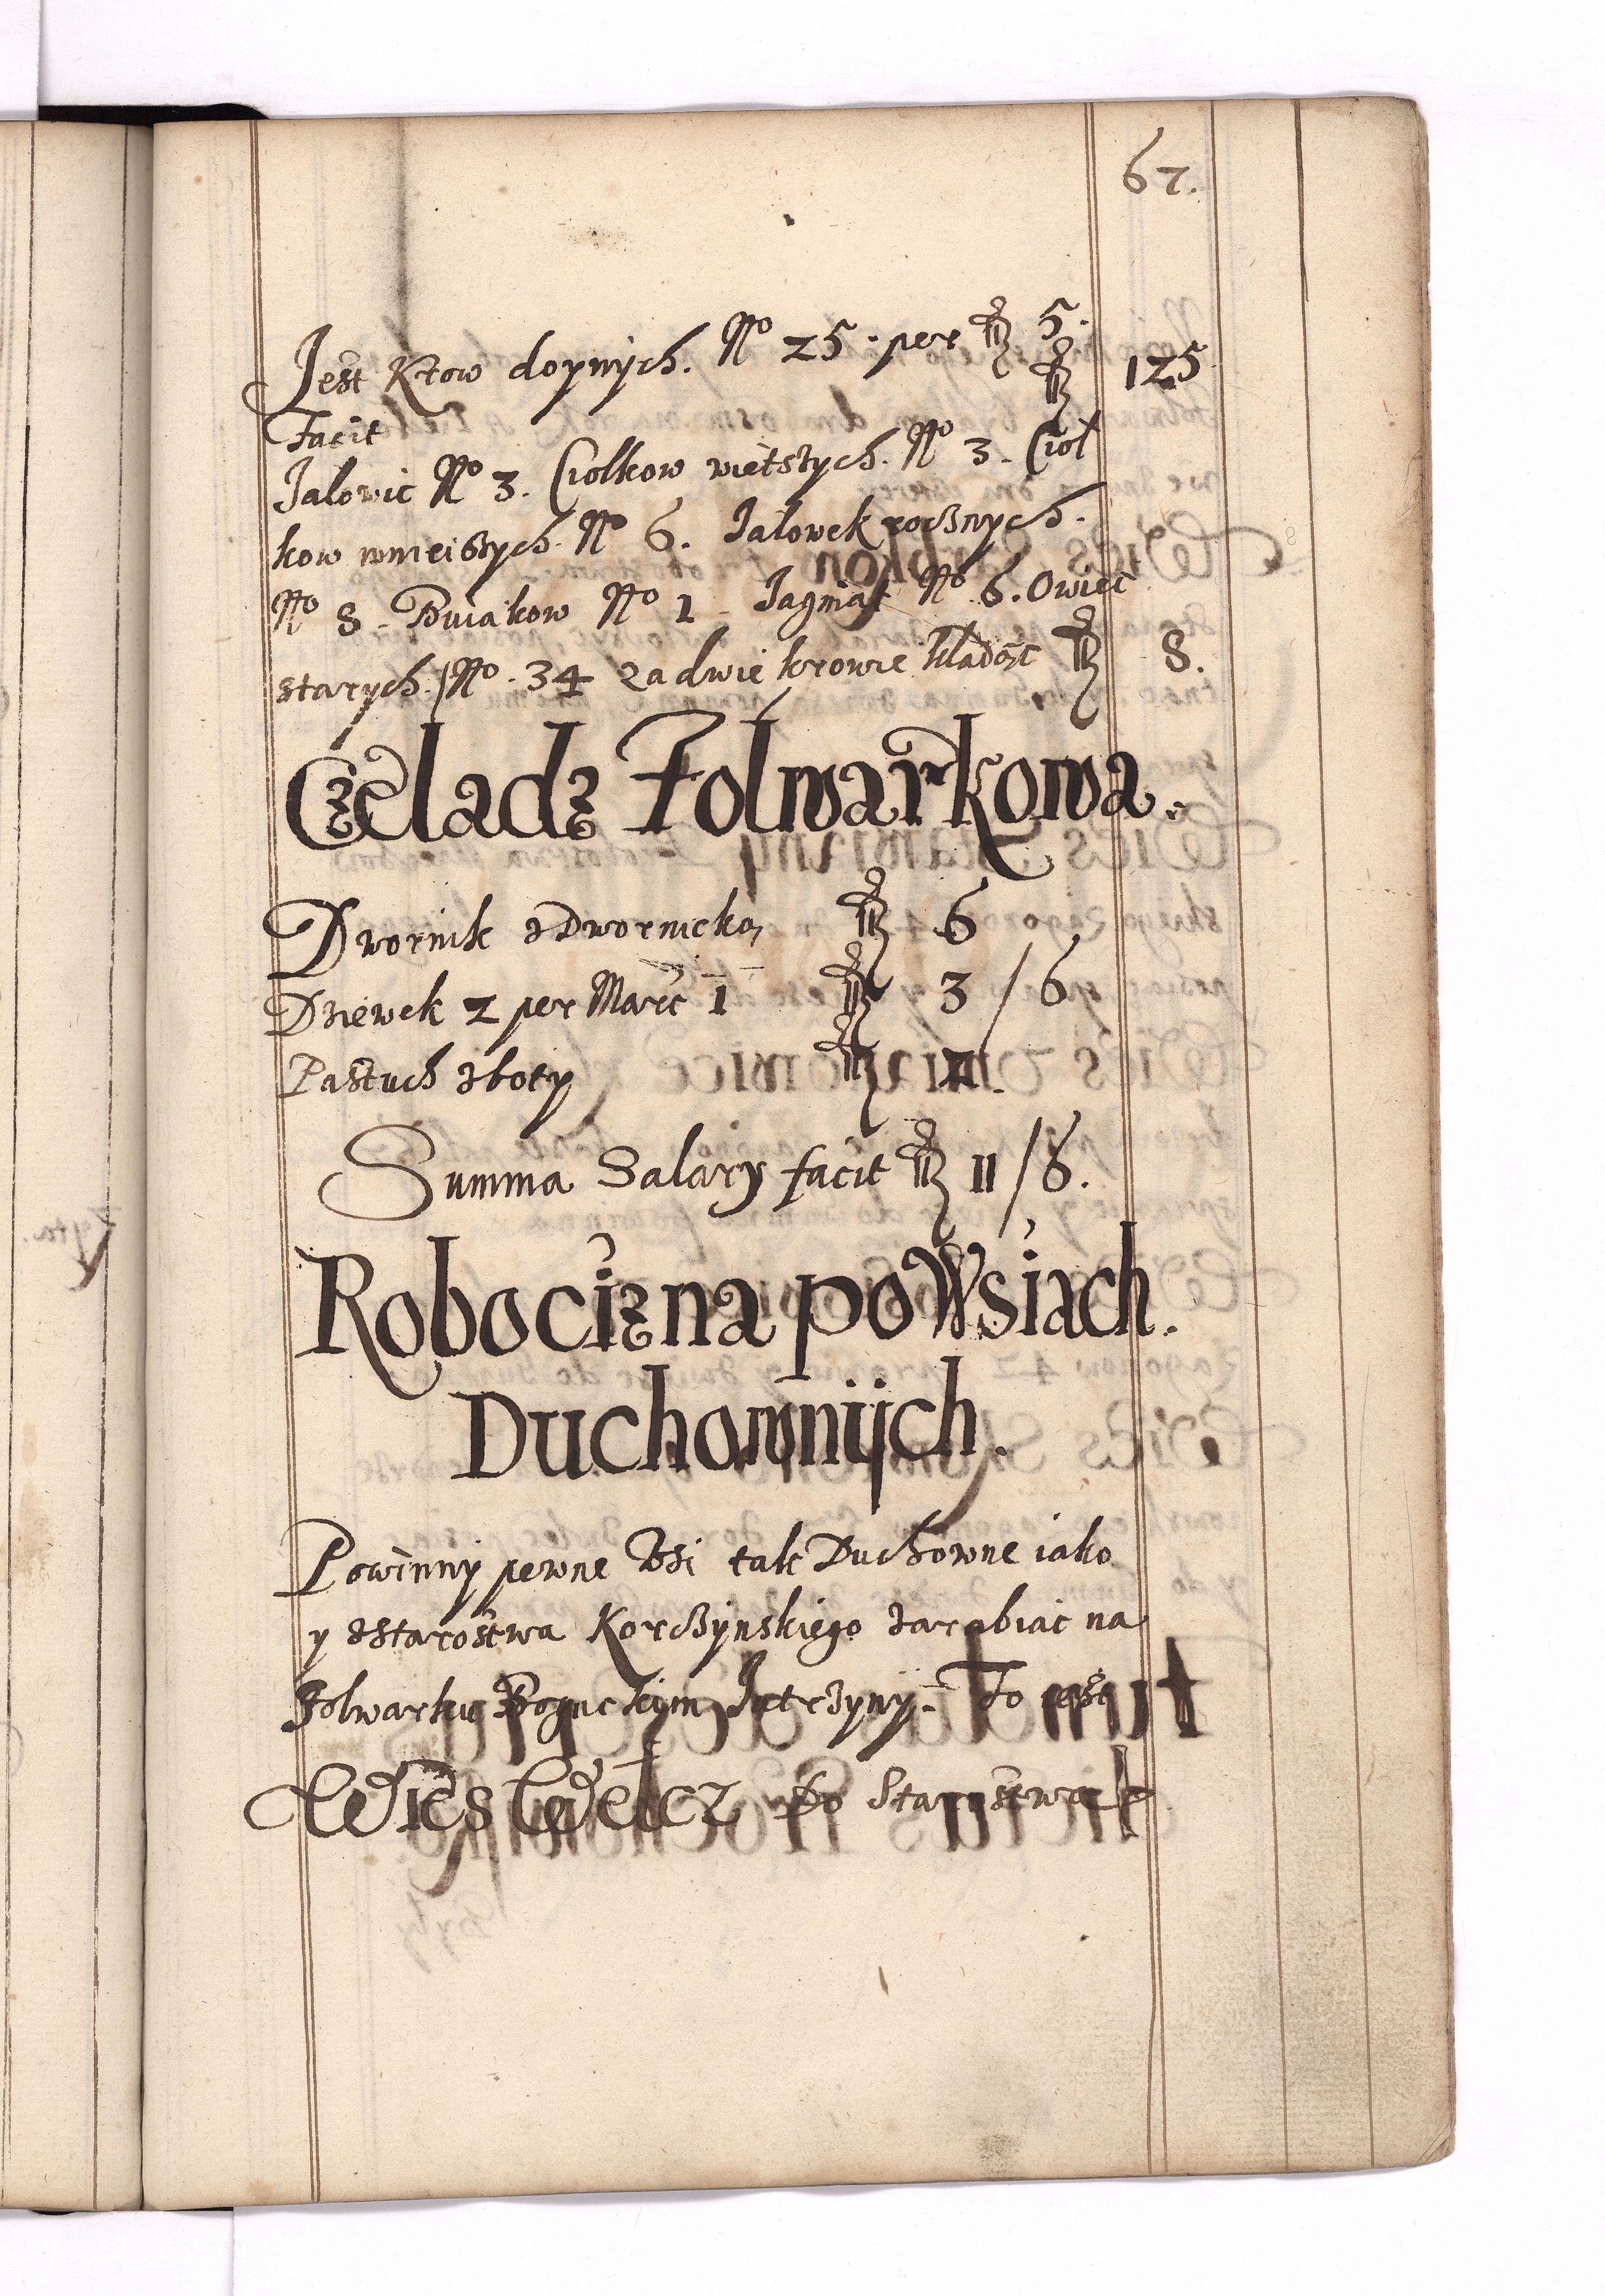 67.
Jest Krow doynych. No 25. per fl 5.
Facit fl 125
Jalowic No 3. Ciolkow wietszych. No 3. Ciol
kow mnieiszych. No 6. Jalowek rocznych.
No 8. Buiakow No 1. Jagniat No 6. Owiec
starych. No. 34 za dwie krowie kladąc fl 8.
Czeladz Folwarkowa.
Dwornik z Dwornicką fl 6
Dziewek 2 per Marc 1 fl 3 / 6
Pastuch z boty fl 2.
Summa Salary facit fl 11 / 6.
Robocizna po Wsiach.
Duchownijch.
Powinny pewne Wsi tak Duchowne iako
y z starostwa Korczynskiego zarabiać na
Folwarku Boguckim Jutrzyny. To iest
Wies Welcz Do Starostwa